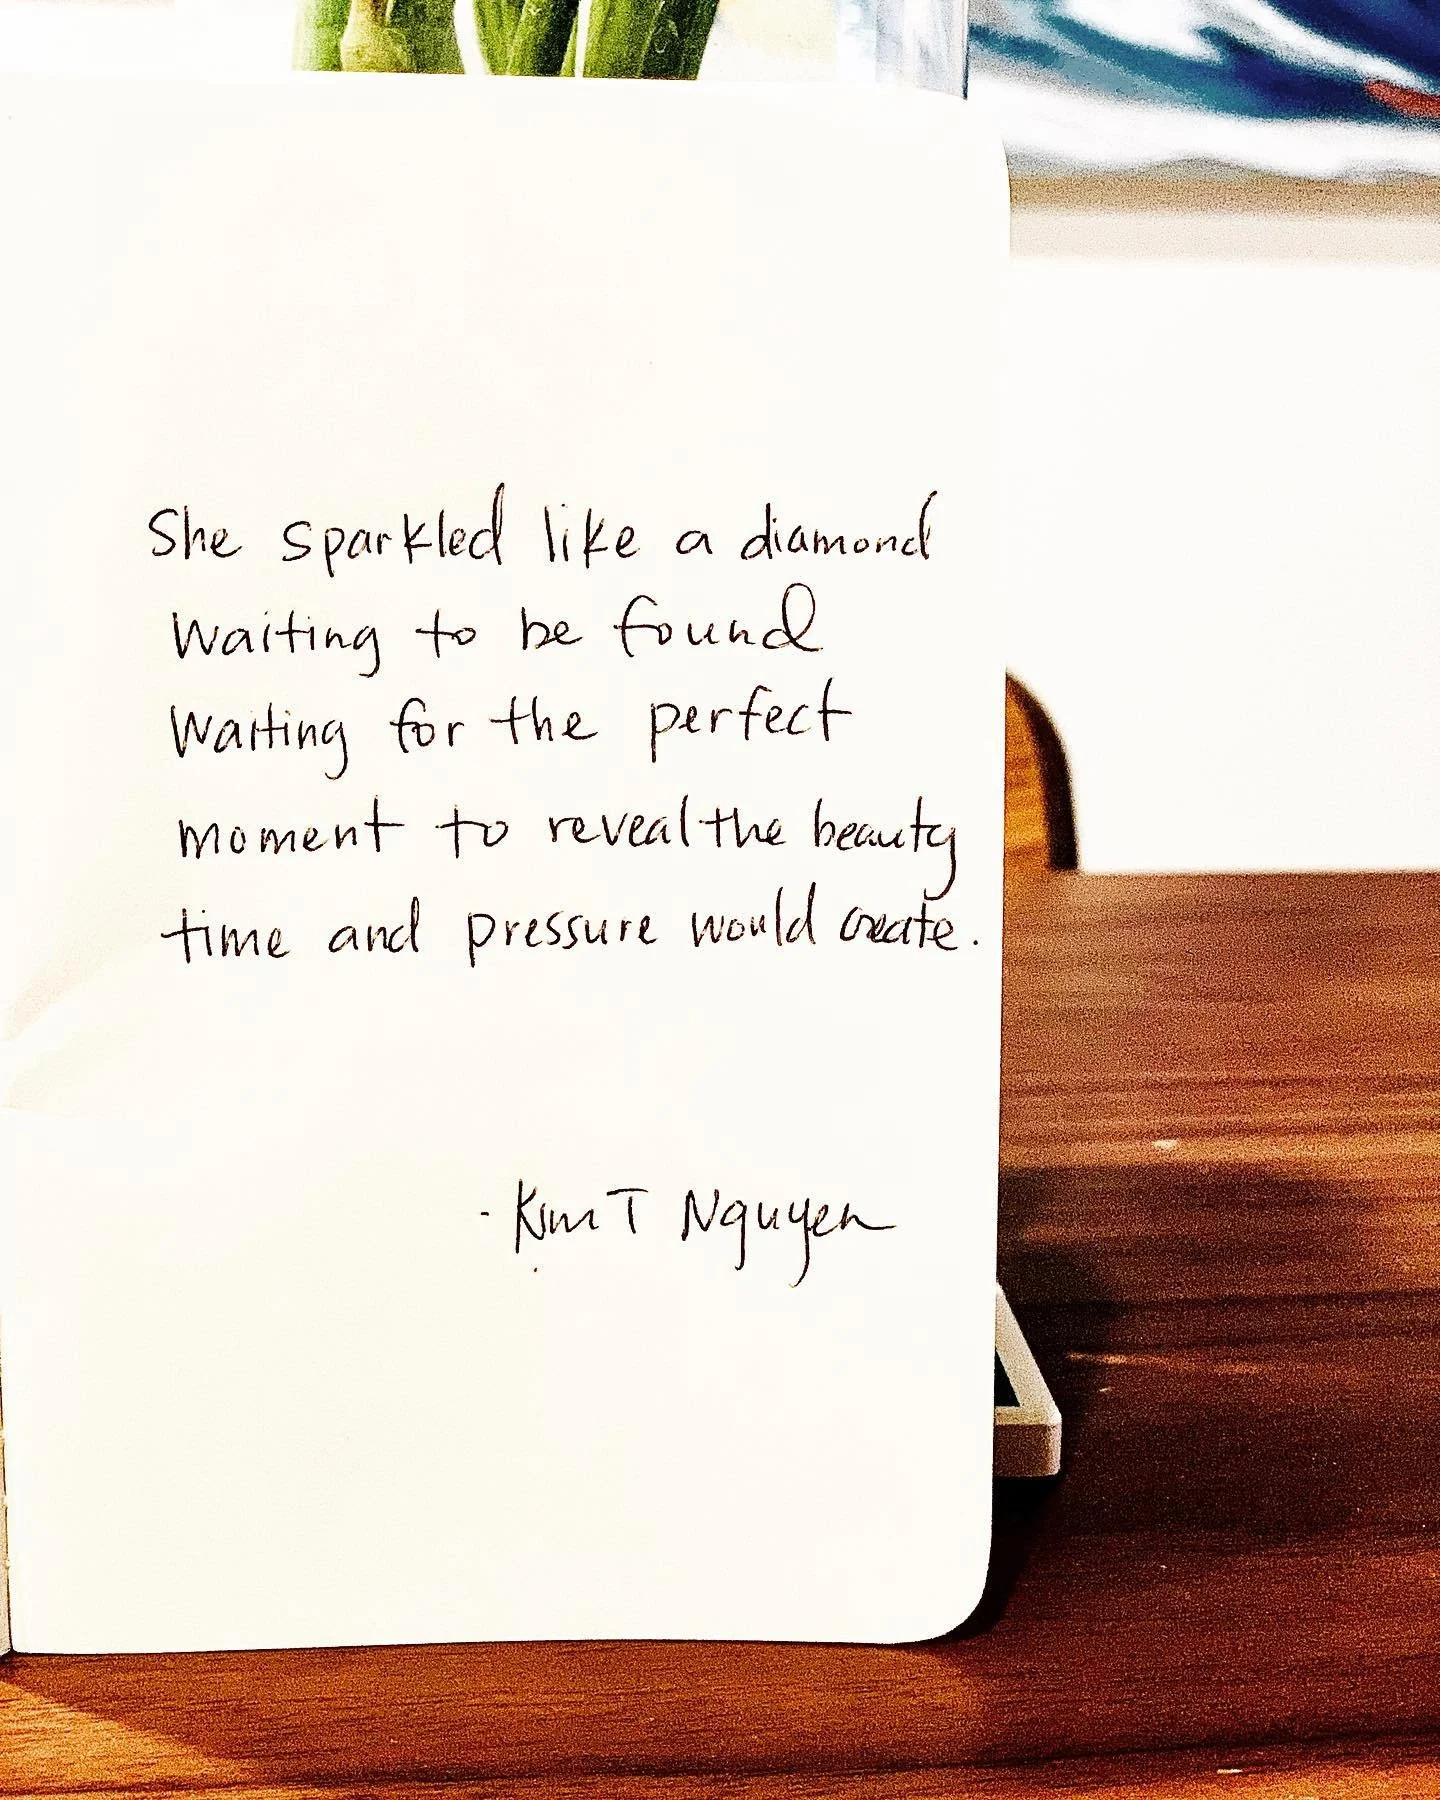 She sparkled like a diamond
Waiting to be found
Waiting for the perfect
moment to reveal the beauty
time and pressure would create.
- Kim T Nguyen